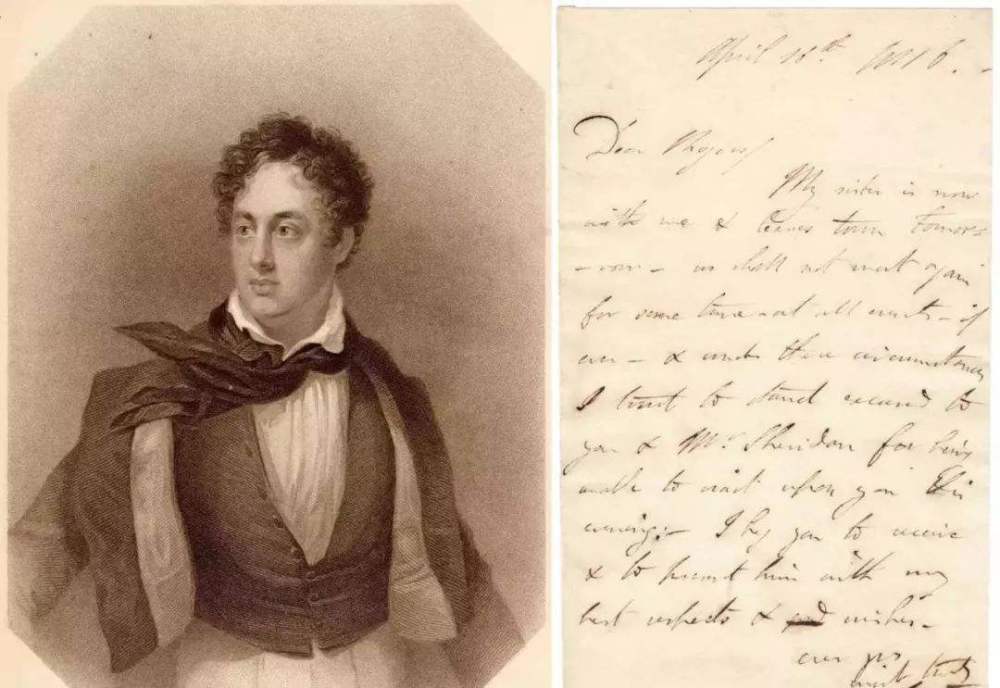 April 16th 1816.
Dear Rogers/
My sister is now
with me & leaves town tomor-
-row - we shall not meet again
for some time - at all events - if
ever - & under these circumstances
I trust to stand excused to
you & Mr Sheridan for being
unable to wait upon you this
evening. - I beg you to receive
& to present him with my
best respects & wishes -
ever yrs
most truly